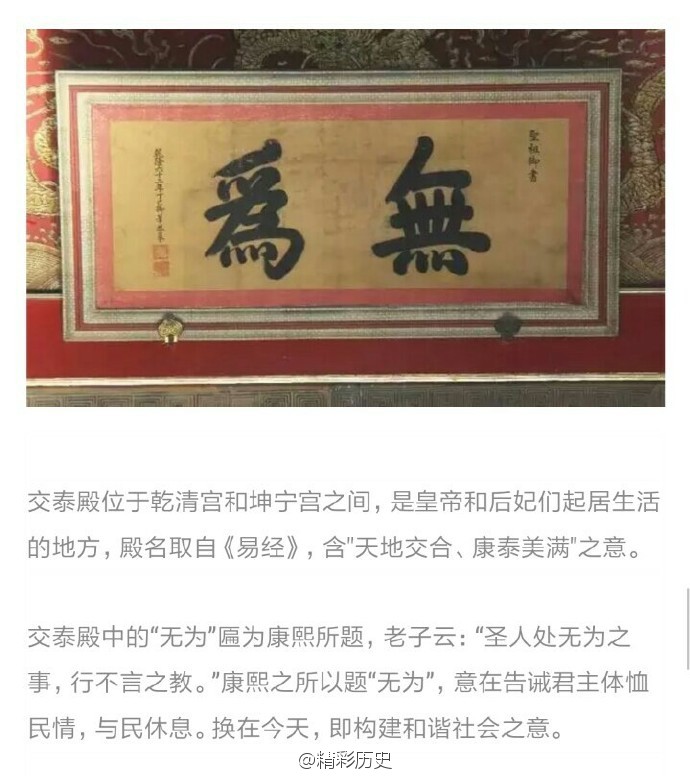 聖祖御書
無爲
交泰殿位于乾清宫和坤宁宫之间，是皇帝和后妃们起居生活
的地方，殿名取自《易经》，含"天地交合、康泰美满"之意。
交泰殿中的“无为”匾为康熙所题，老子云：“圣人处无为之
事，行不言之教。”康熙之所以题“无为”，意在告诫君主体恤
民情，与民休息。换在今天，即构建和谐社会之意。
@精彩历史